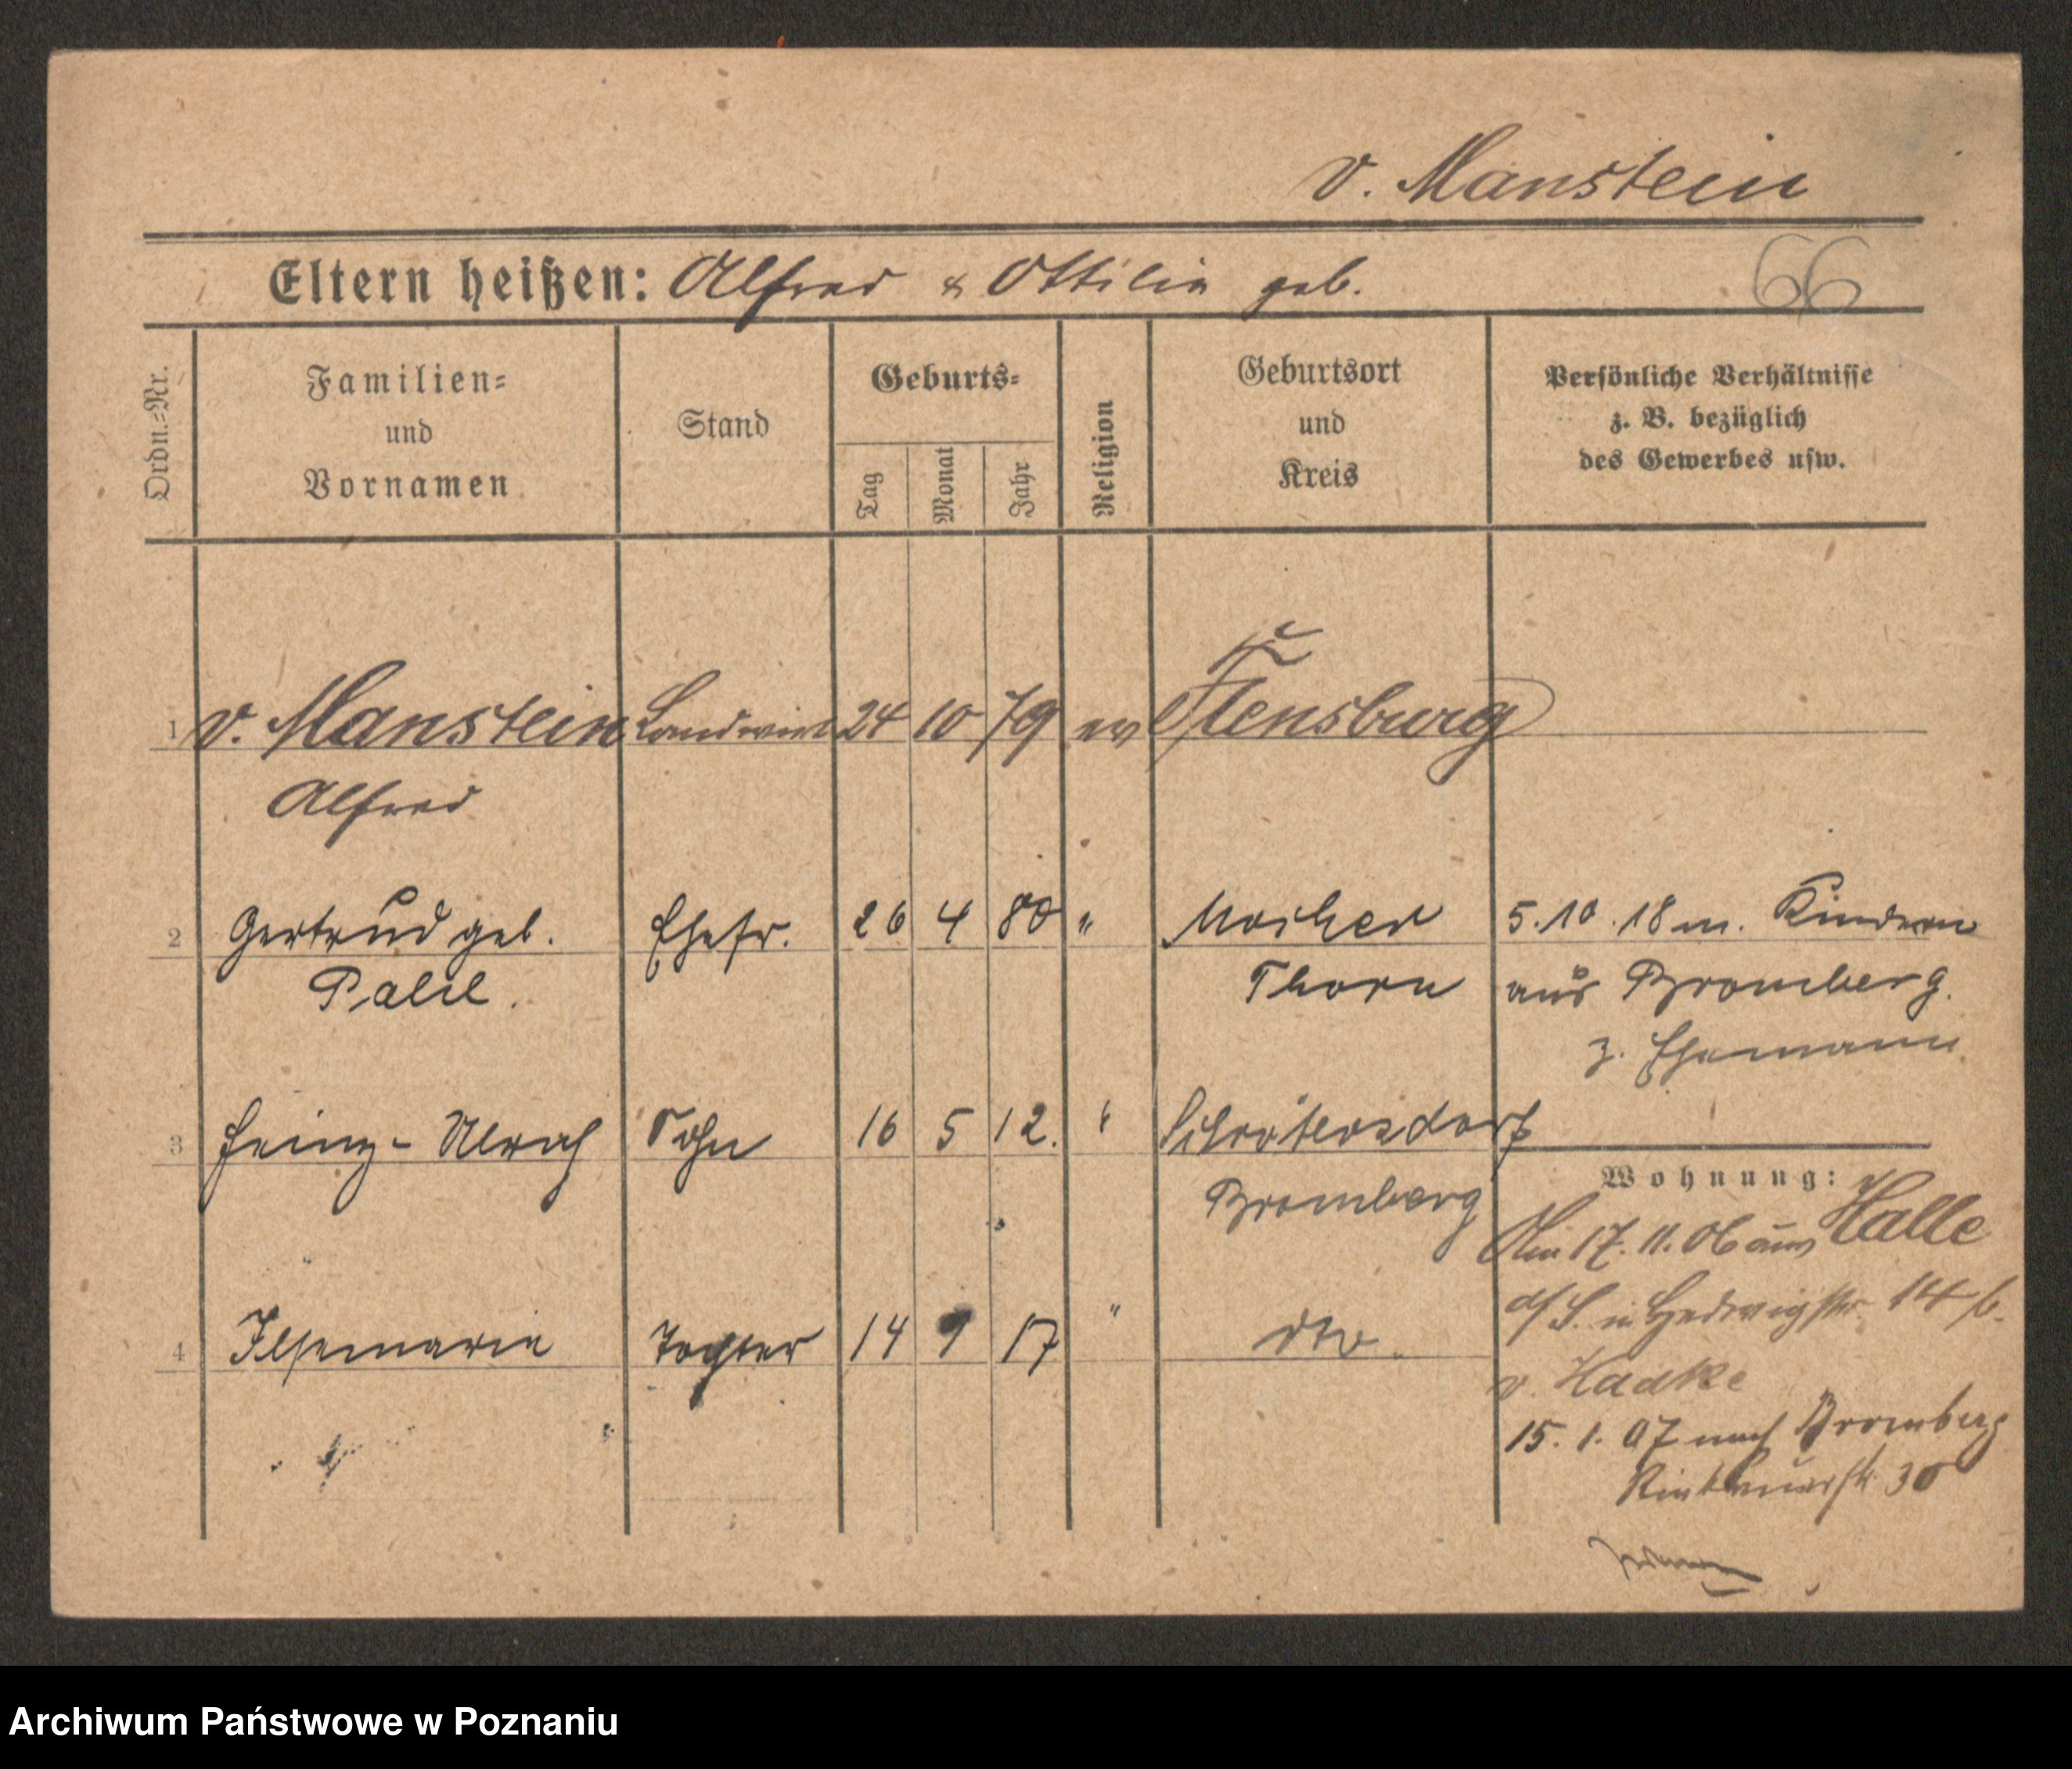 v. Manstein
Eltern heißen: Alfred & Ottilie geb.
66
Ordn.-Nr.
Familien-
und
Vornamen
Stand
Geburts-
Tag
Monat
Jahr
Religion
Geburtsort
und
Kreis
Persönliche Verhältnisse
z. B. bezüglich
des Gewerbes usw.
1 v. Manstein Landwirt 24 10 79 ev Flensburg
Alfred
2 Gertrud geb. Ehefr. 26 4 80 " Mocker 5.10.18 m. Kindern
Thorn aus Bromberg.
z. Ehemann
3 Heinz-Ulrich Sohn 16 5 12. " Schrötersdorf
Bromberg
Wohnung:
17.11.06 aus Halle
a/S. in Hedwigstr. 14 b.
4 Ilsemarie Tochter 14 9 17 " dto.
v. Hadke
15.1.07 nach Bromberg
Rinkauerstr. 30
Archiwum Państwowe w Poznaniu